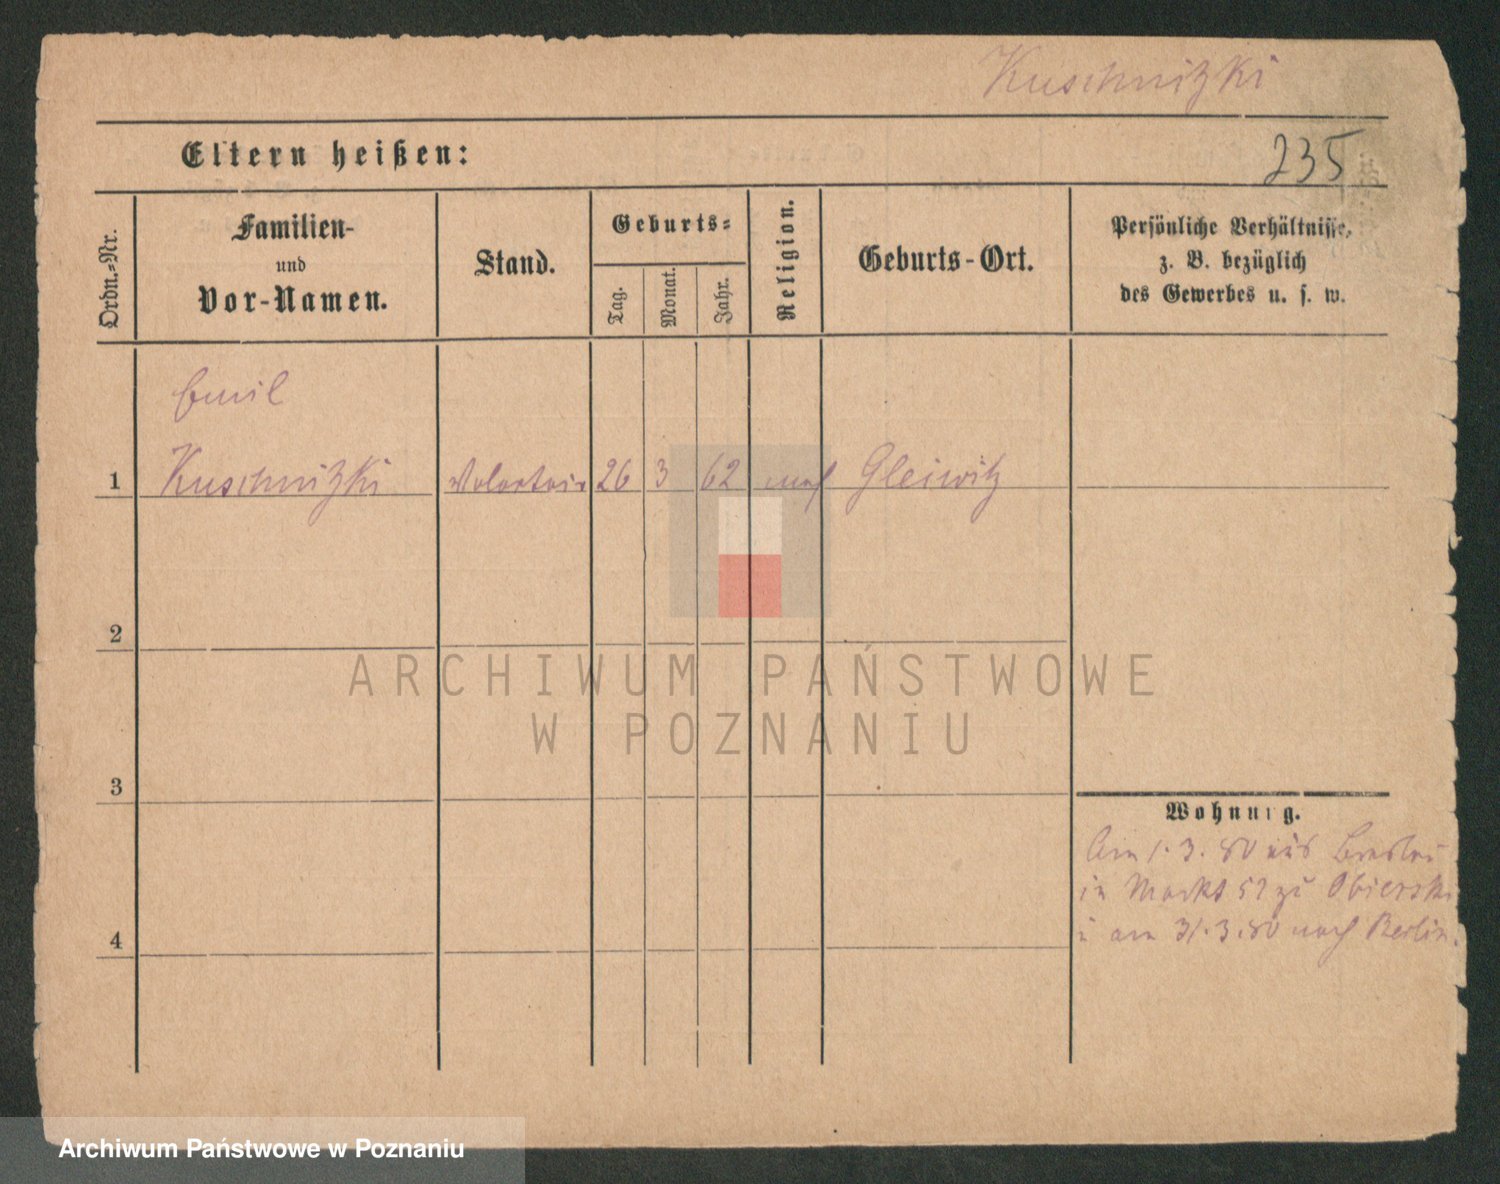 Kuschnitzki
Eltern heißen:
235
Ordn.=Nr.
Familien-
und
Vor-Namen.
Stand.
Geburts=
Tag.
Monat.
Jahr.
Religion.
Geburts-Ort.
Persönliche Verhältnisse,
z. B. bezüglich
des Gewerbes u. s. w.
Emil
1 Kuschnitzki 26 3 62 mos Gleiwitz
2
ARCHIWUM PAŃSTWOWE
W POZNANIU
3
Wohnung.
Am 1.3.80 aus Breslau
in Markt 52 zu Obierski
4
u am 31.3.80 nach Berlin.
Archiwum Państwowe w Poznaniu